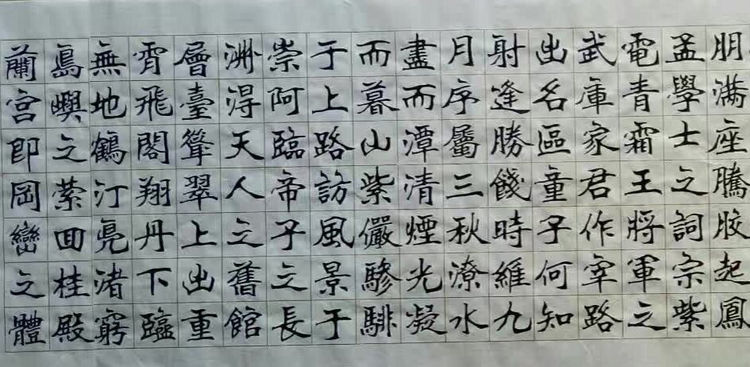 朋滿座騰胶起鳳
孟學士之詞宗紫
電青霜王將軍之
武庫家君作宰路
出名區童子何知
射逢勝餞時維九
月序屬三秋潦水
盡而潭清煙光凝
而暮山紫儼驂騑
于上路訪風景于
崇阿臨帝子之長
洲得天人之舊館
層臺聳翠上出重
霄飛閣翔丹下臨
無地鶴汀鳧渚窮
島嶼之縈回桂殿
蘭宮即岡巒之體